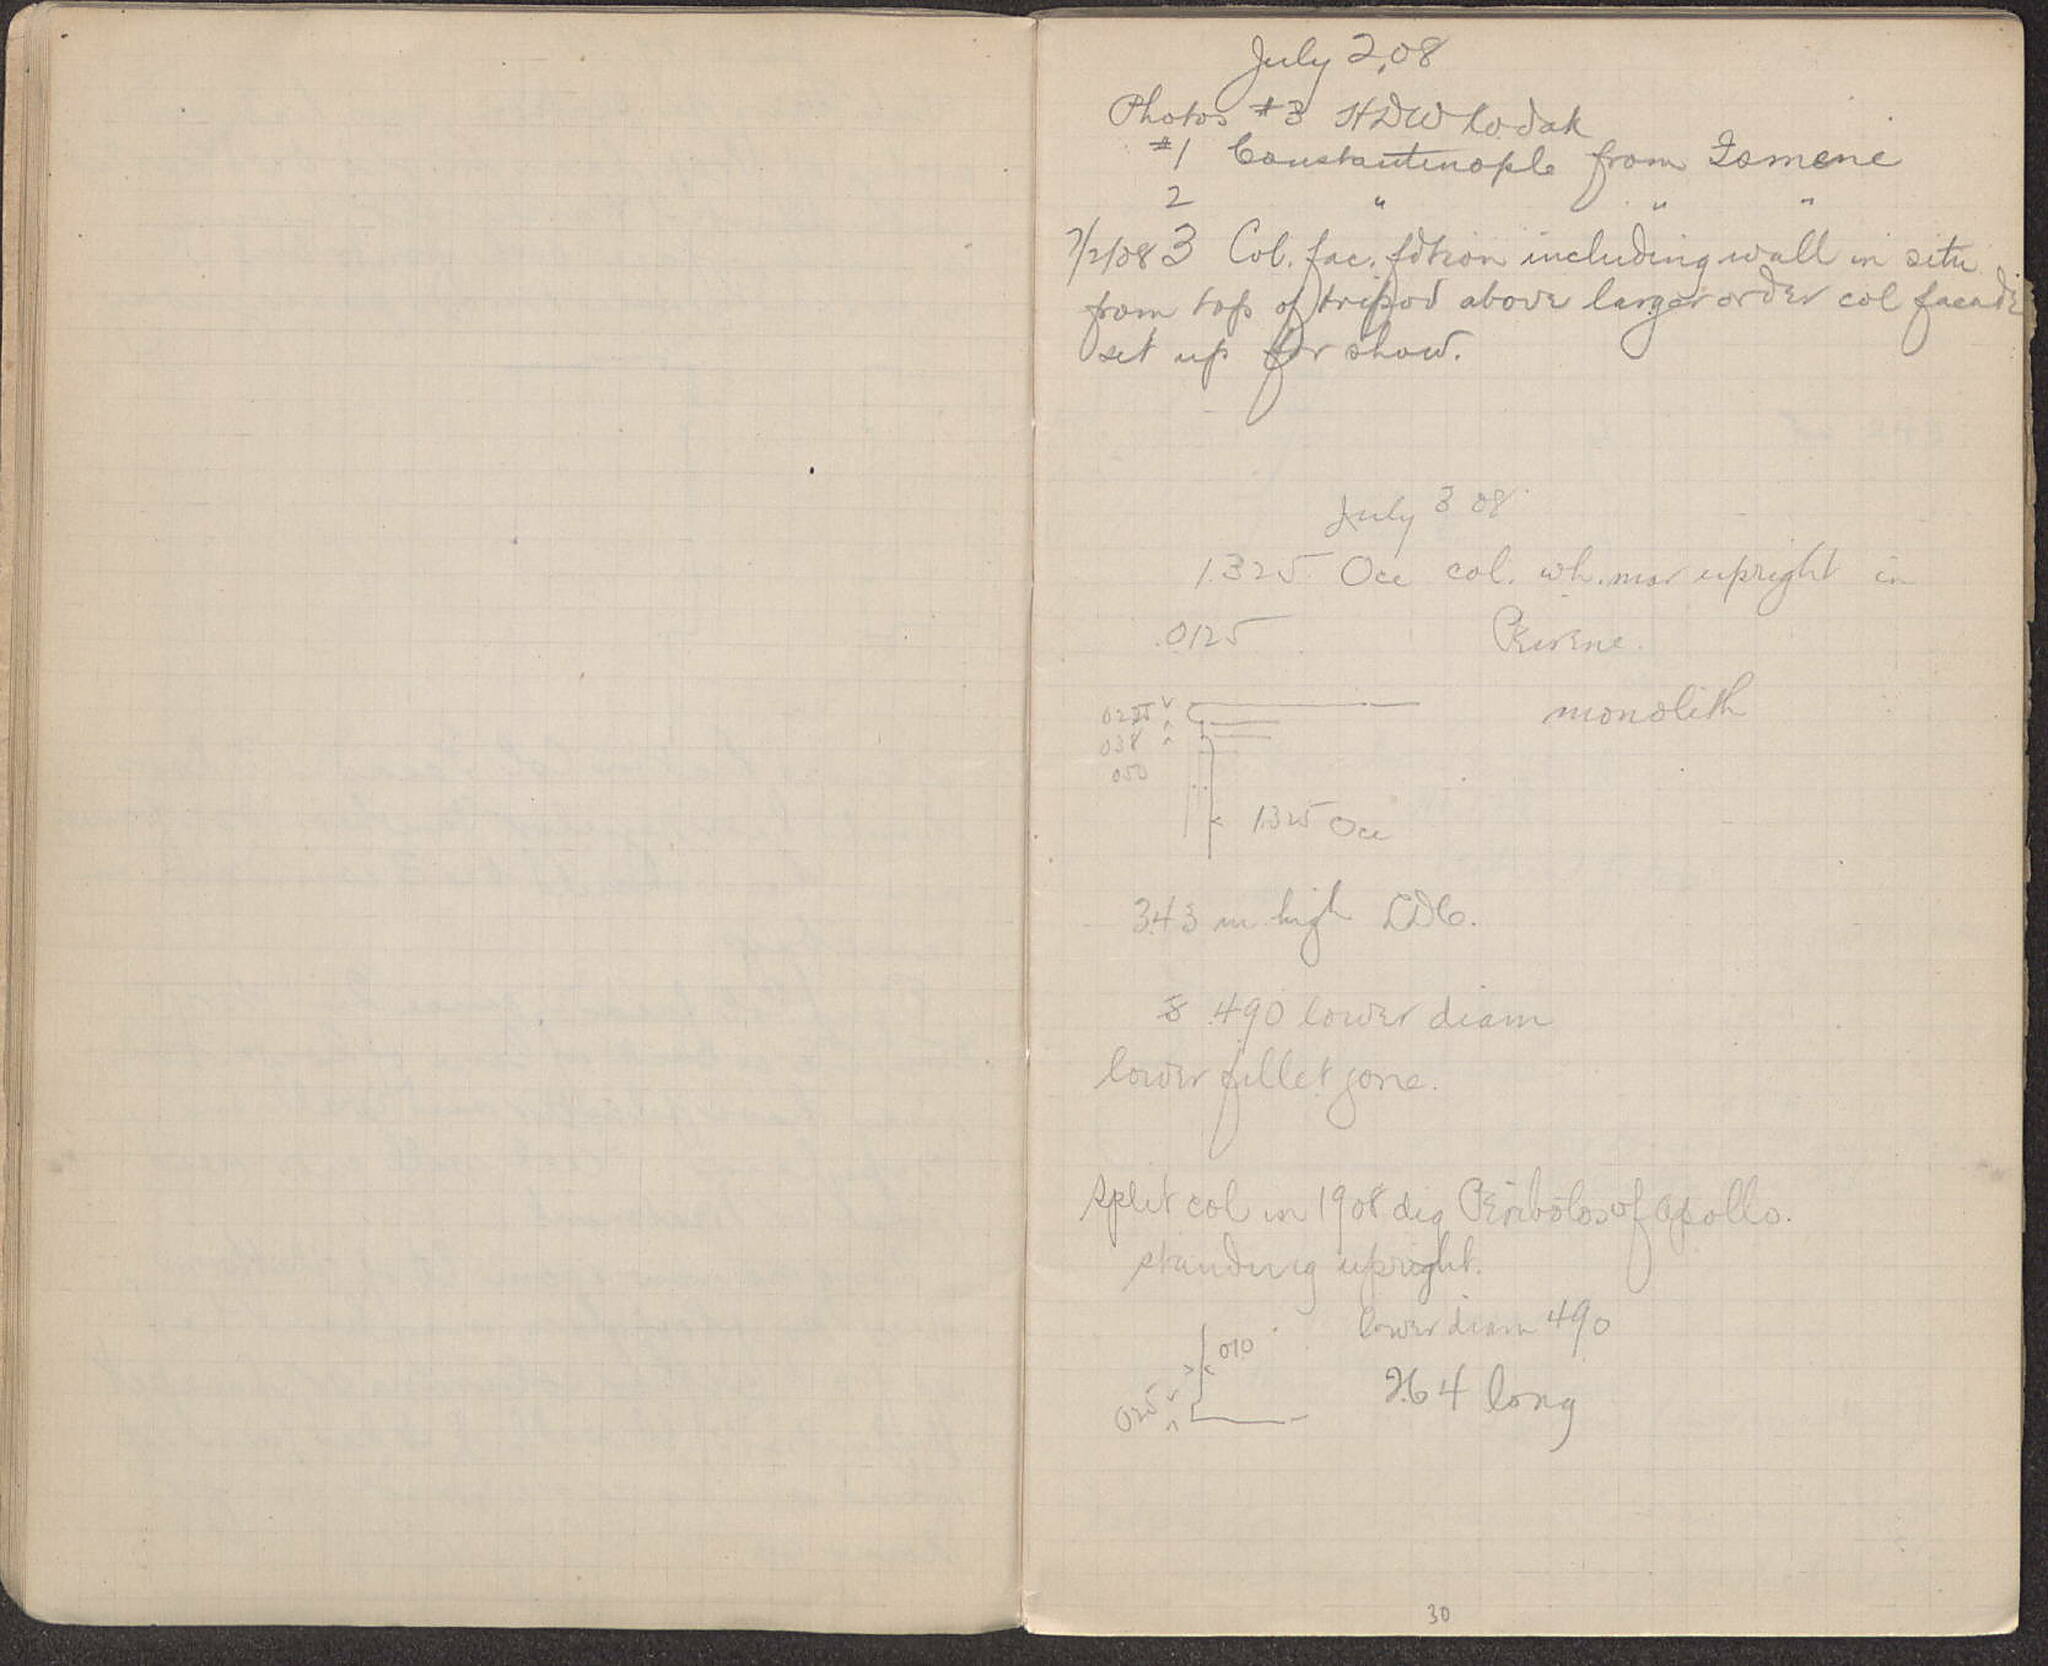 July 2,08
Photos #3 HDW kodak
#1 Constantinople from Ismene
2 " " "
7/2/08 3 Col. fac. fdtion including wall in situ
from top of tripod above larger order col facade
set up for show.
July 3 08
1.325 Occ col. wh. mar upright in
.0125 Peirene.
monolith
038
050
1.325 Occ
3.43 m high
.490 lower diam
lower fillet gone.
Split col in 1908 dig Peribolos of Apollo.
standing upright.
lower diam 490
010
025
2.64 long
30